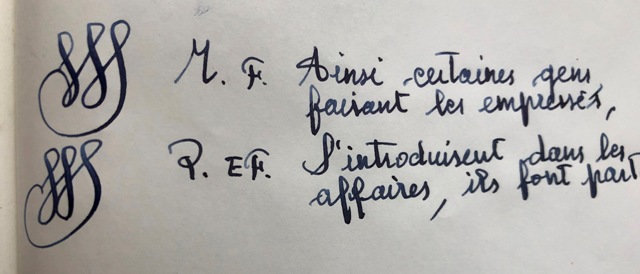 M. F. Ainsi certaines gens
faisant les empressés,
P. EF. S'introduisent dans les
affaires, ils font part